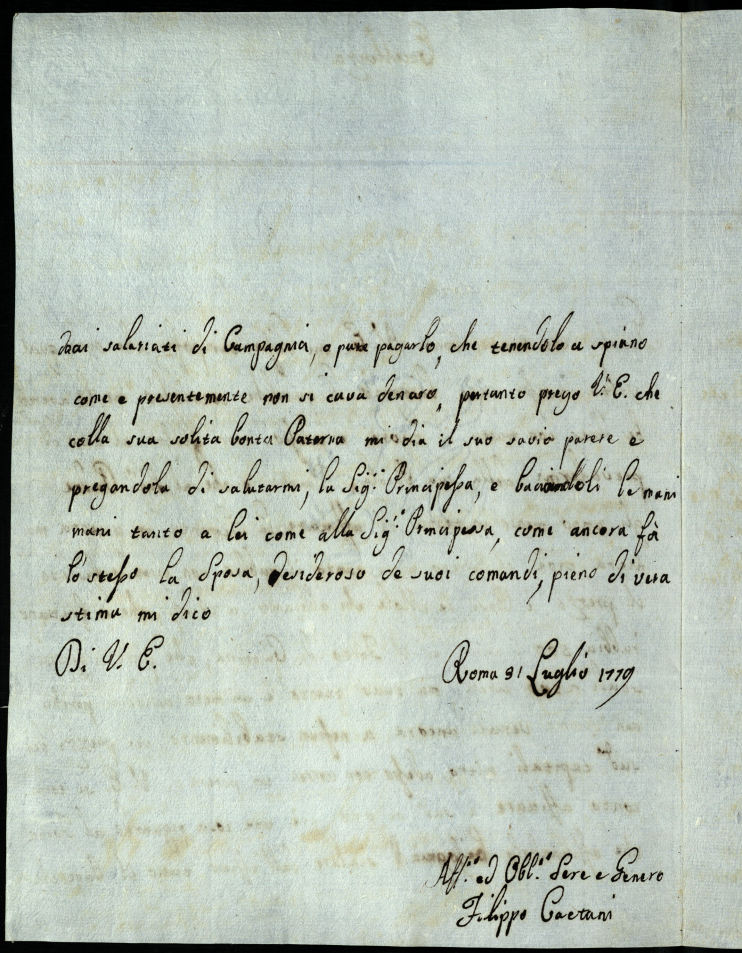 dai salariati di Campagnia, o pure pagarlo, che tenendolo a spinno
come e presentemente non si cava denaro, pertanto prego V.ª E. che
colla sua solita bontà Paterna mi dia il suo savio parere e
pregandola di salutarmi, la Sig.ª Principessa, e baciandoli le mani
mani tanto a lei come alla Sig.ª Principessa, come ancora fà
lo stesso la Sposa, desideroso de suoi comandi, pieno di vera
stima mi dico
Di V. E.
Roma 31 Luglio 1779
Aff.º ed Obl.º Serv e Genero
Filippo Caetani